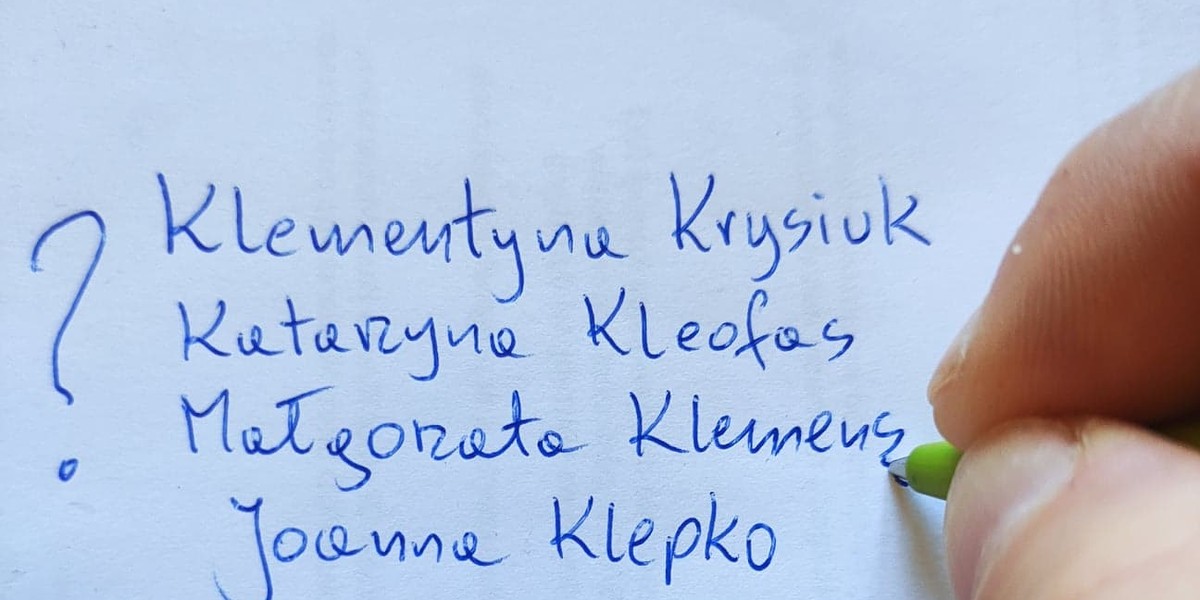 ? Klementyna Krysiuk
Katarzyna Kleofas
Małgorzata Klemens
Joanna Klepko